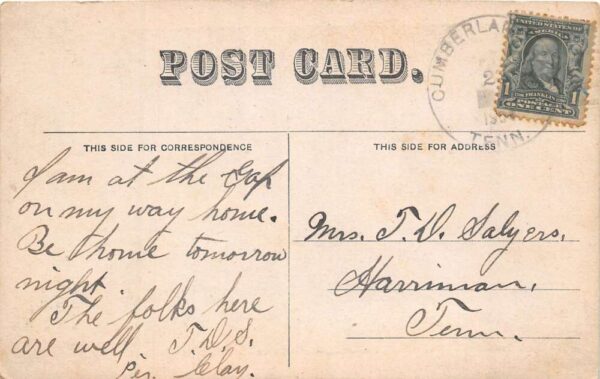 POST CARD.
CUMBERLAN
TENN.
UNITED STATES OF
AMERICA
FRANKLIN
POSTAGE
1 1
ONE CENT
THIS SIDE FOR CORRESPONDENCE
THIS SIDE FOR ADDRESS
I am at the Gap
on my way home.
Be home tomorrow
night.
The folks here
are well. T.D.S.
Per. Clay.
Mrs. T. D. Salyers.
Harriman,
Tenn.